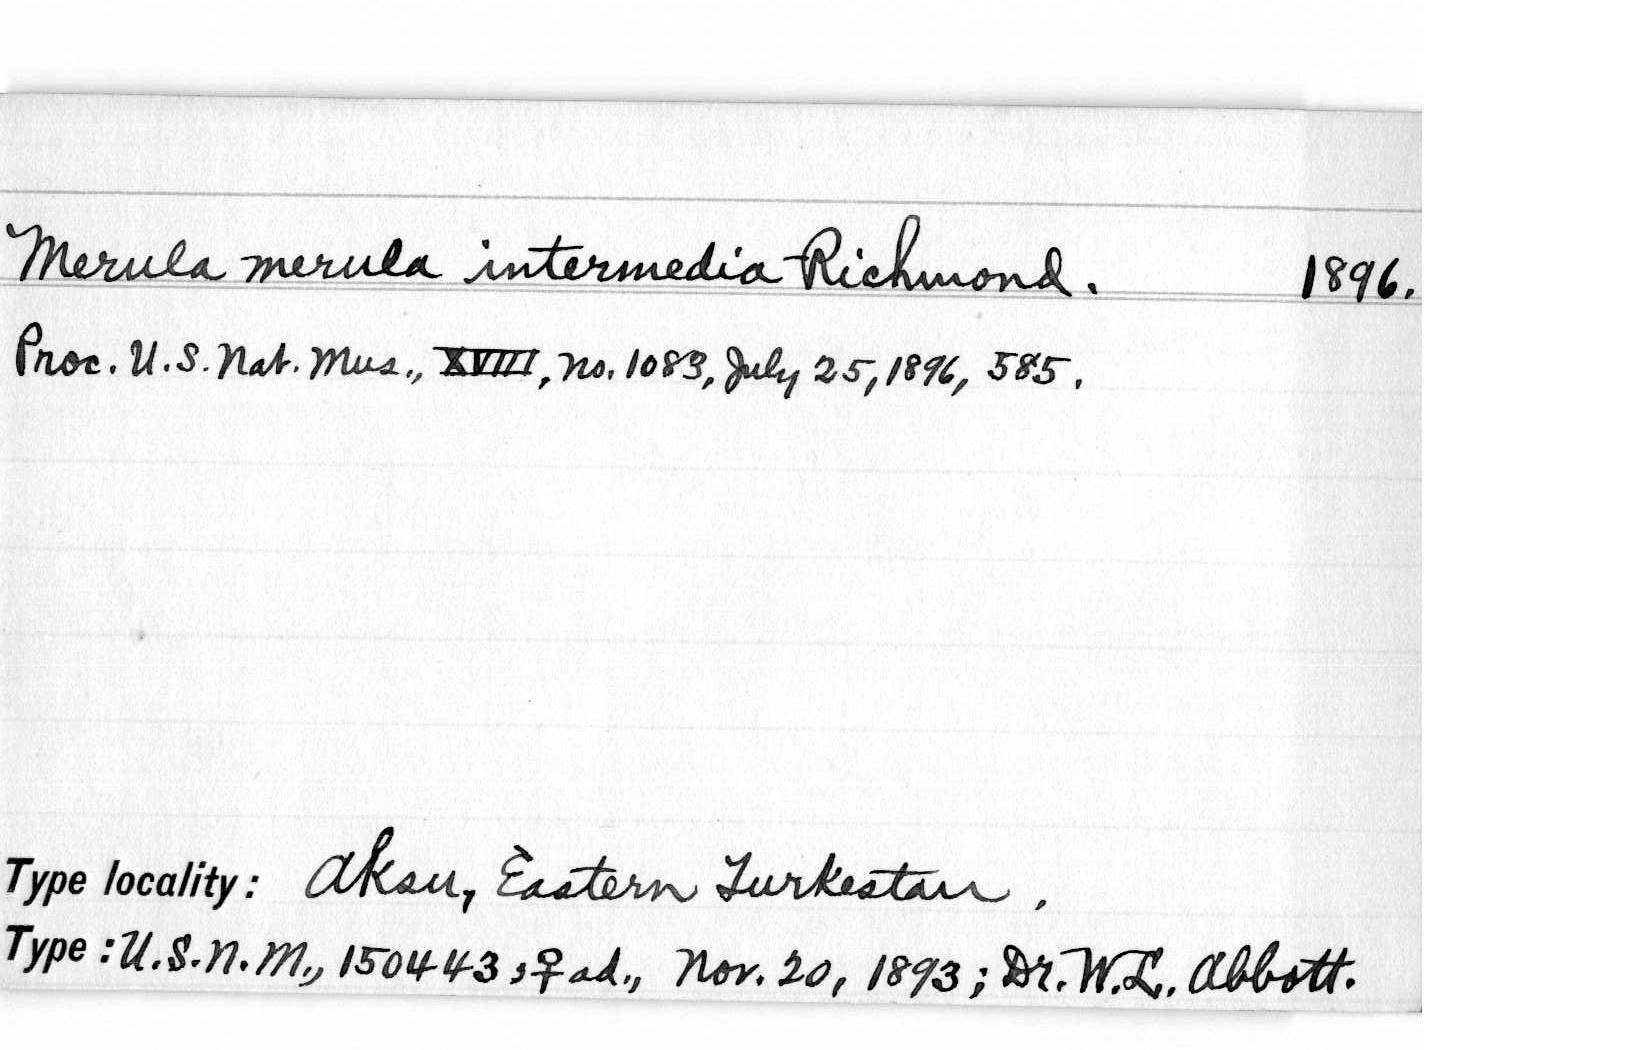 Merula merula intermedia Richmond. 1896.
Proc. U.S. Nat. Mus., XVIII, no. 1083, July 25, 1896, 585.
Type locality: Aksu, Eastern Turkestan.
Type: U.S.N.M., 150443, ♀ ad., Nov. 20, 1893; Dr. W.L. Abbott.